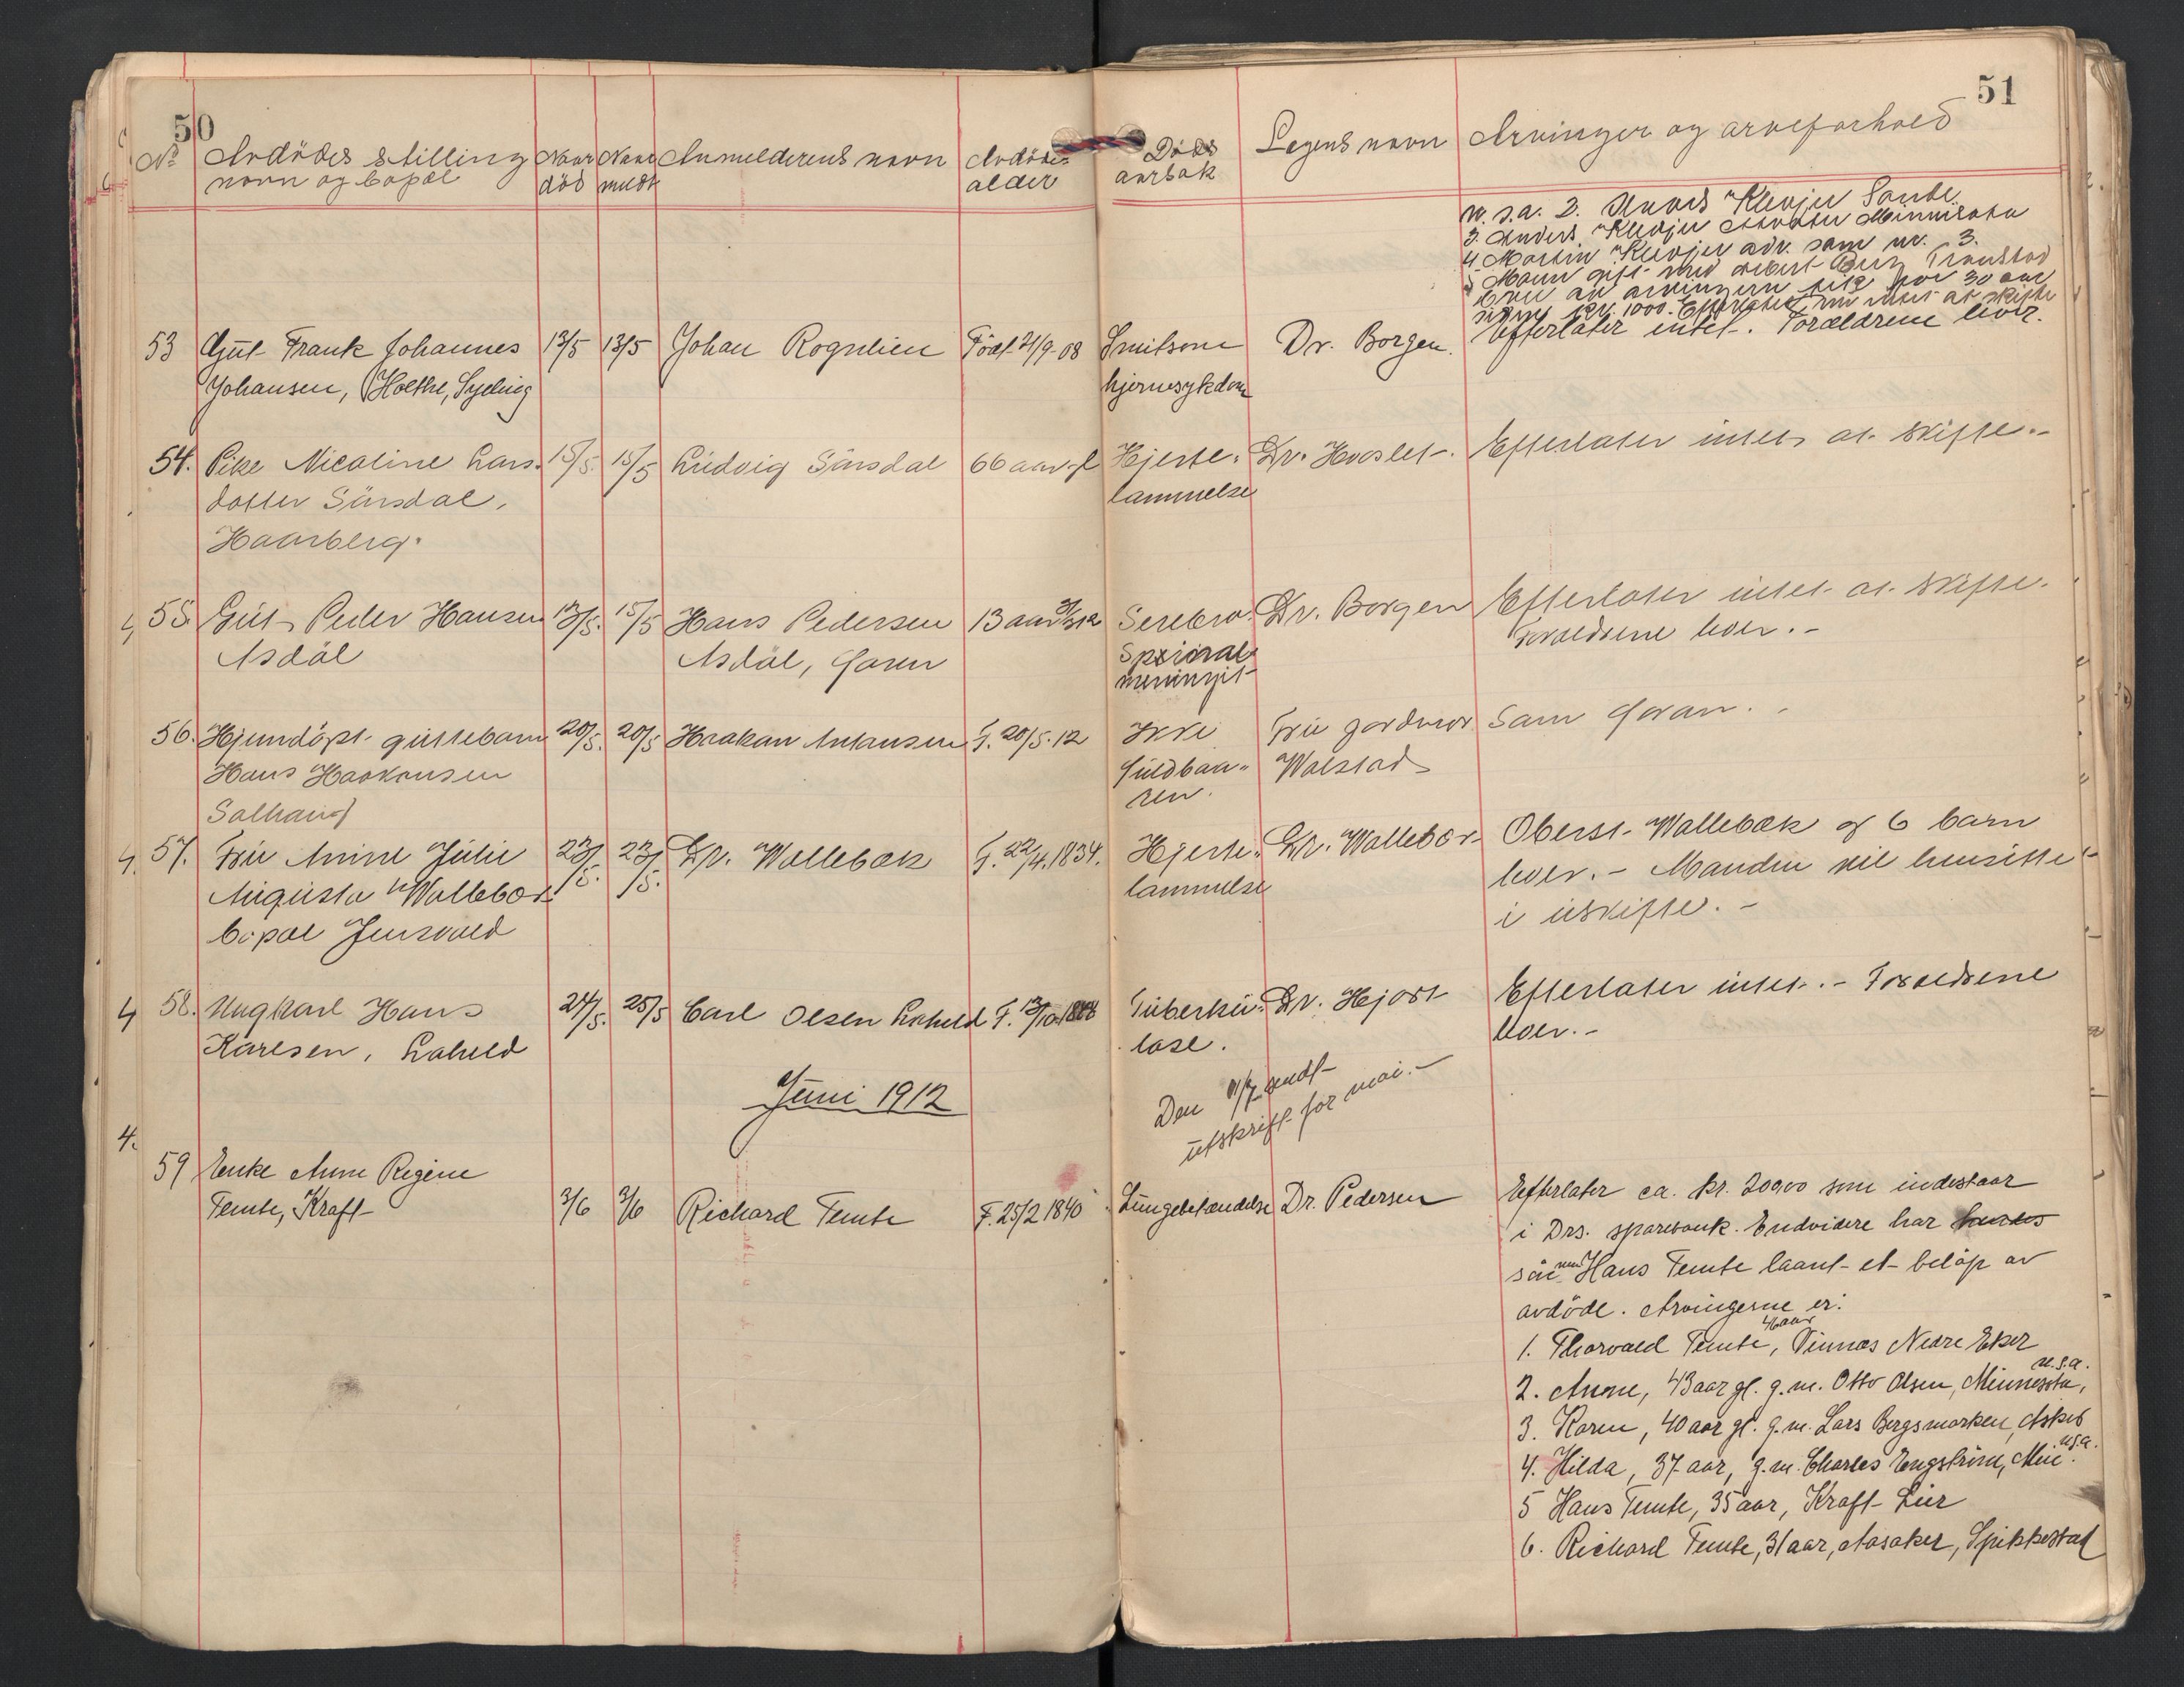 50
No
Avdödes stilling
navn og bopæl
Naar
död
Naar
meldt
Anmelderens navn
Avdödes
alder
51
Döds
aarsak
Legens navn
Arvinger og arveforhold
3. Anders Klevjer Minnisota
4 Martin Klevjer adr. som nr. 3.
53
Gut Frank Johannes
Johansen, Holthe, Sylling
13/5
13/5
Johan Rognlien
Födt 21/9-08
Smitsom
hjernesykdom
Dr. Borgen.
Efterlater intet. Foræeldrene lever.
54.
Pike Nicoline Lars-
datter Sörsdal,
Haarberg.
15/5.
15/5
Ludvig Sörsdal
66 aar gl
Hjerte-
lammelse
Dr. Hvoslef.
Efterlater intet at skifte.-
4
55.
Gut Peder Hansen
Asdöl
13/5.
15/5
Hans Pedersen
Asdöl, faren
13 aar
Serebro
Spinal
meningit
Dr. Borgen
Efterlater intet at skifte.
Forældrene lever.-
56.
Hjemdöpt guttebarn
Hans Haakonsen
Solhaug
20/5.
20/5
Haakon Antonsen
F. 20/5.12
Ikke
fuldbaa-
ren.
Fru jordmor
Walstad
Som foran.-
4.
57.
Fru Anine Julie
Augusta Wallebæk
bopæl Jensvold
23/5.
23/5.
Dr. Wallebæk
F. 22/4.1834.
Hjerte-
lammelse
Dr. Wallebæk
Oberst Wallebæk og 6 barn
lever.- Manden vil hensitte
i uskifte.-
4
58.
Ungkarl Hans
Karlsen, Laheld
24/5.
25/5
Carl Olsen Laheld
F. 13/10
Tuberku-
lose.
Dr. Hjort
Efterlater intet.- Forældrene
lever.-
Juni 1912
Den 11/7 sendt
utskrift for mai.-
4.
59
Enke Anne Regine
Temte, Kraft
3/6
3/6
Richard Temte
F. 25/2 1840
Lungebetændelse
Dr. Pedersen
Efterlater ca. kr. 20900 som indestaar
i Drs. sparebank. Endvidere har hendes
sön Hans Temte laant et belöp av
avdöde. Arvingerne er:
46 aar
1. Thorvald Temte, Vinnæs Nedre Eker
u.s.a.
2. Anne, 43 aar gl. g.m. Otto Olsen, Minnesota,
3. Karen, 40 aar gl. g.m. Lars Bergsmarken, Asker
u.s.a.
4. Hilda, 37 aar, g.m. Charles Engström, Min.
5 Hans Temte, 35 aar, Kraft Lier
6. Richard Temte, 31 aar, Aasaker, Spikkestad